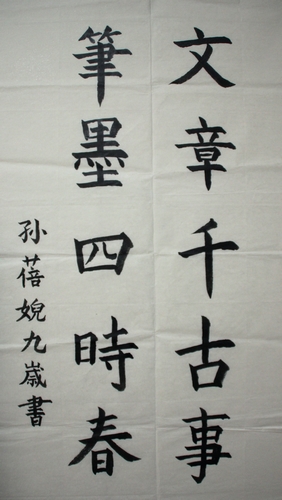 文章千古事
筆墨四時春
孫蓓婗九歲書